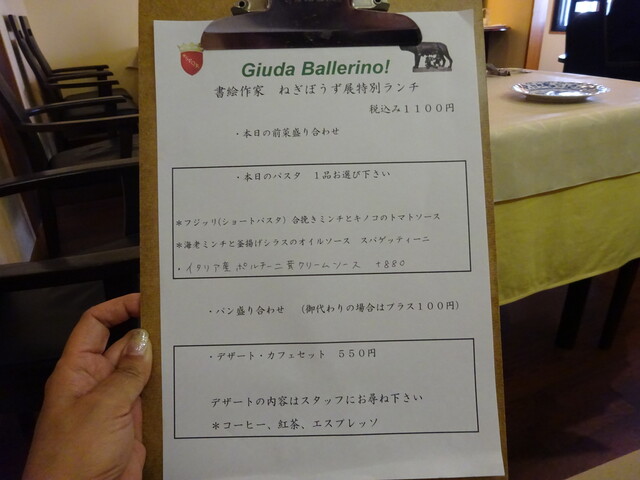 Giuda Ballerino!
書絵作家 ねぎぼうず展特別ランチ
税込み1100円
・本日の前菜盛り合わせ
・本日のパスタ 1品お選び下さい
*フジッリ(ショートパスタ) 合挽きミンチとキノコのトマトソース
*海老ミンチと釜揚げシラスのオイルソース スパゲッティーニ
・イタリア産 ポルチーニ茸クリームソース +880
・パン盛り合わせ (御代わりの場合はプラス100円)
・デザート・カフェセット 550円
デザートの内容はスタッフにお尋ね下さい
*コーヒー、紅茶、エスプレッソ